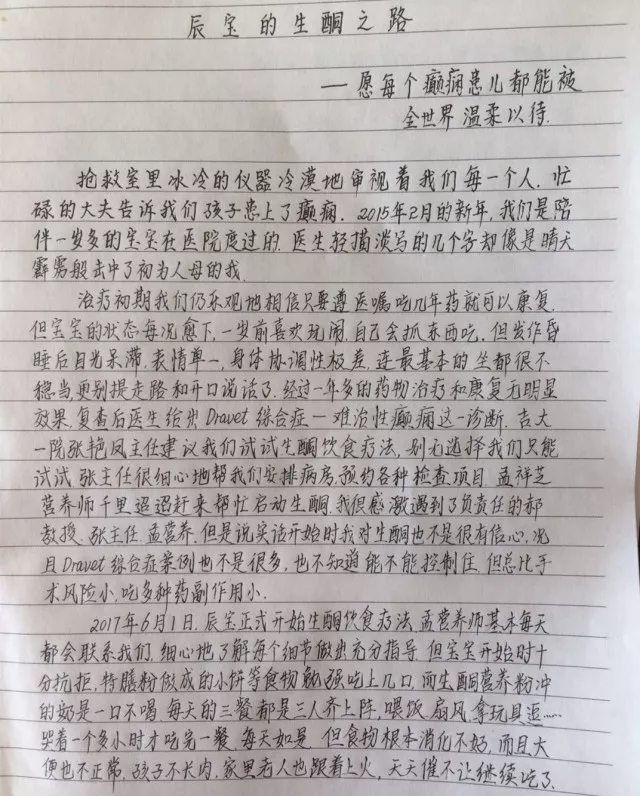 辰宝的生酮之路
——愿每个癫痫患儿都能被
全世界温柔以待.
抢救室里冰冷的仪器冷漠地审视着我们每一个人.忙
碌的大夫告诉我们孩子患上了癫痫.2015年2月的新年,我们是陪
伴一岁多的宝宝在医院度过的.医生轻描淡写的几个字却像是晴天
霹雳般击中了初为人母的我.
治疗初期我们仍乐观地相信只要遵医嘱吃几年药就可以康复.
但宝宝的状态每况愈下,一岁前喜欢玩闹.自己会抓东西吃.但发作昏
睡后目光呆滞.表情单一,身体协调性极差,连最基本的坐都很不
稳当.更别提走路和开口说话了.经过一年多的药物治疗和康复无明显
效果.复查后医生给出Dravet综合症—难治性癫痫这一诊断.吉大
一院张艳凤主任建议我们试试生酮饮食疗法,别无选择我们只能
试试.张主任很细心地帮我们安排病房,预约各种检查项目.孟祥芝
营养师千里迢迢赶来帮忙启动生酮.我很感激遇到了负责任的郝
教授、张主任、孟营养.但是说实话开始时我对生酮也不是很有信心,况
且Dravet综合症案例也不是很多,也不知道能不能控制住.但总比手
术风险小,吃多种药副作用小.
2017年6月1日.辰宝正式开始生酮饮食疗法.孟营养师基本每天
都会联系我们.细心地了解每个细节做出充分指导.但宝宝开始时十
分抗拒,特膳粉做成的小饼等食物勉强吃上几口,而生酮营养粉冲
的奶是一口不喝.每天的三餐都是三人齐上阵,喂饭.扇风.拿玩具逗……
哭着一个多小时才吃完一餐.每天如是.但食物根本消化不好,而且大
便也不正常,孩子不长肉,家里老人也跟着上火,天天催不让继续吃了.